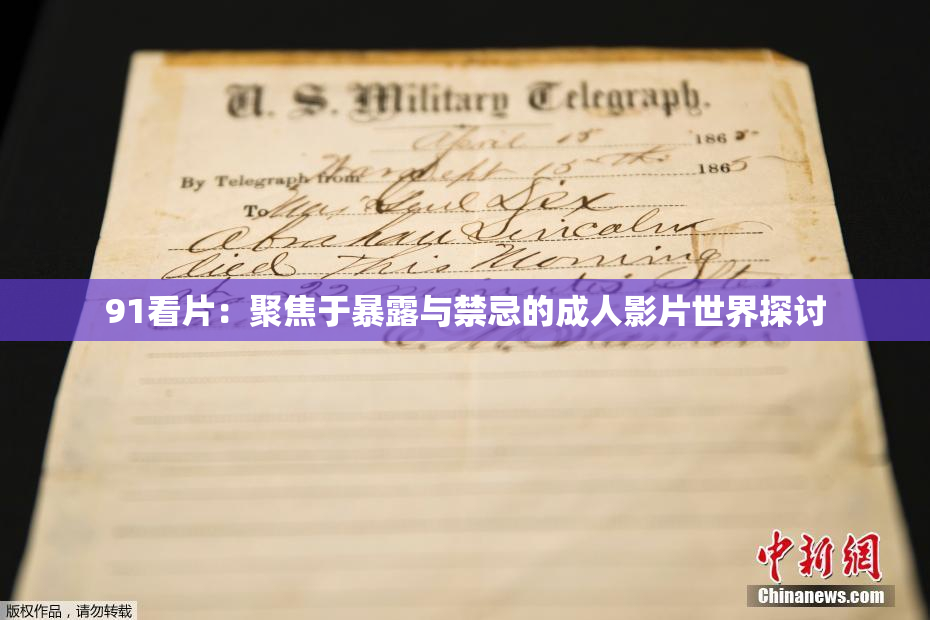 U. S. Military Telegraph.
April 15 1865
By Telegraph from War Dept 15th 1865
To Maj Genl Dix
Abraham Lincoln
died This Morning
at 22 minutes after
91看片：聚焦于暴露与禁忌的成人影片世界探讨
E. M. Stanton
中新網
Chinanews.com
版权作品，请勿转载